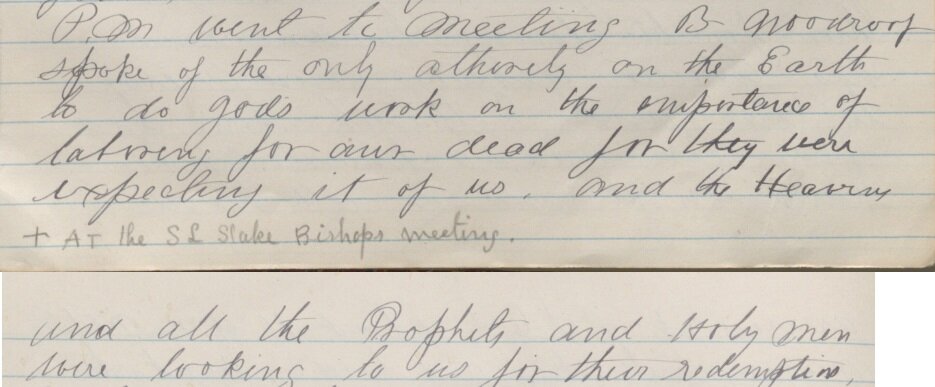 P.M went to meeting B Woodroof
spoke of the only athority on the Earth
to do gods work on the importance of
laboring for our dead for they were
expecting it of us. and the Heavens
+ AT the SL Stake Bishops meeting.
and all the Prophets and Holy men
were looking to us for their redemption